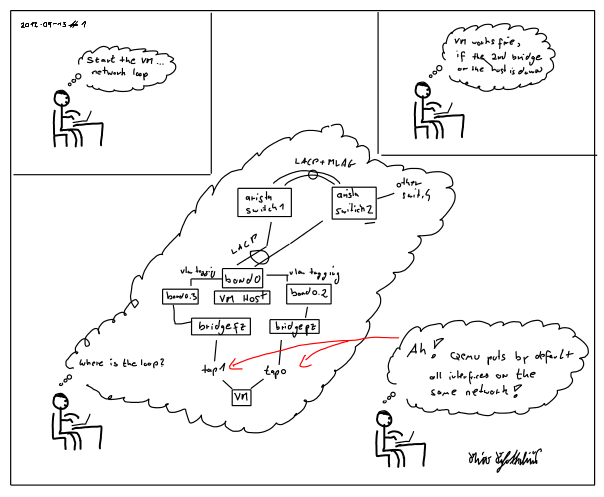 2012-09-13 #1
Start the VM...
network loop
VM works fire,
if the 2nd bridge
on the host is down
LACP+MLAG
arista
switch1
arista
switch2
other
switch
LACP
vlan tagging
bond0
vlan tagging
bond0.3
VM Host
bond0.2
bridgefz
bridgepz
tap1
tap0
VM
where is the loop?
Ah! QEMU puts by default
all interfaces on the
same network!